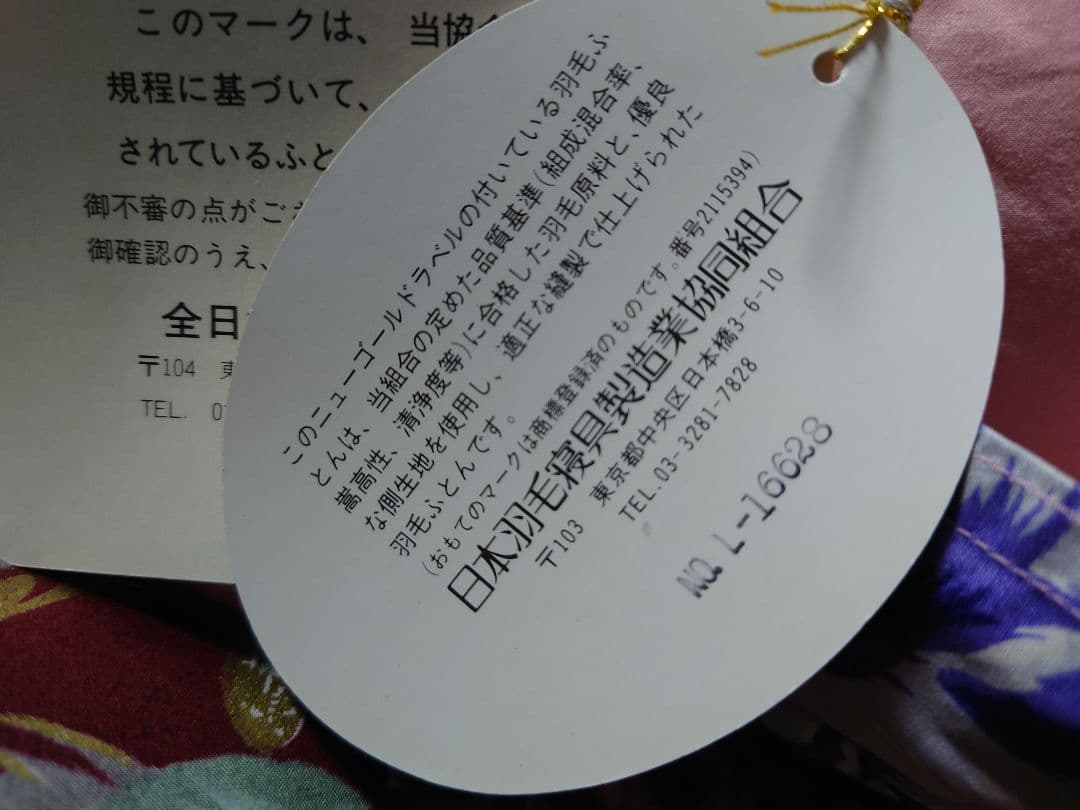 このマークは、 当協
規程に基づいて、
されているふと
御不審の点がござ
御確認のうえ、
全日
〒104 東
TEL. 0
このニューゴールドラベルの付いている羽毛ふ
とんは、当組合の定めた品質基準(組成混合率、
嵩高性、清浄度等)に合格した羽毛原料と、優良
な側生地を使用し、適正な縫製で仕上げられた
羽毛ふとんです。
(おもてのマークは商標登録済のものです。番号2115394)
日本羽毛寝具製造業協同組合
〒103 東京都中央区日本橋3-6-10
TEL.03-3281-7828
NO. L-16628